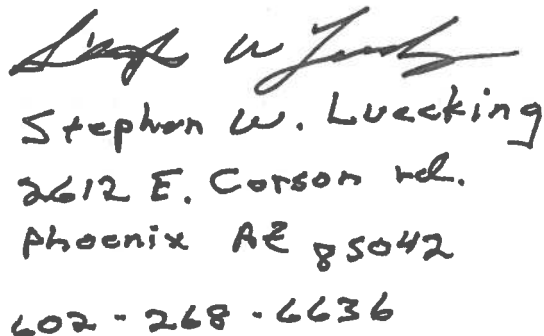 Stephen W. Luecking
2612 E. Corson rd.
Phoenix AZ 85042
602-268-6636